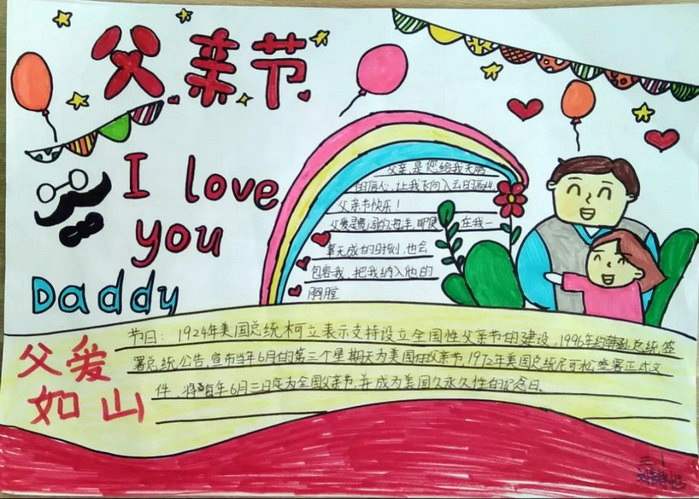 父亲节
I love
you
Daddy
父亲,是您给我无畏
的信心,让我飞向入云的高山
父亲节快乐!
父爱是宽阔的海洋,即使在我一
事无成的时刻,也会
包容我,把我纳入他的
胸膛
父爱
如山
节日:1924年美国总统柯立表示支持设立全国性父亲节的建设,1996年约翰孙总统签
署总统公告,宣布当年6月的第三个星期天为美国的父亲节,1972年美国总统尼可松签署正式文
件,将每年6月三日定为全国父亲节,并成为美国久永久性的纪念日。
三十